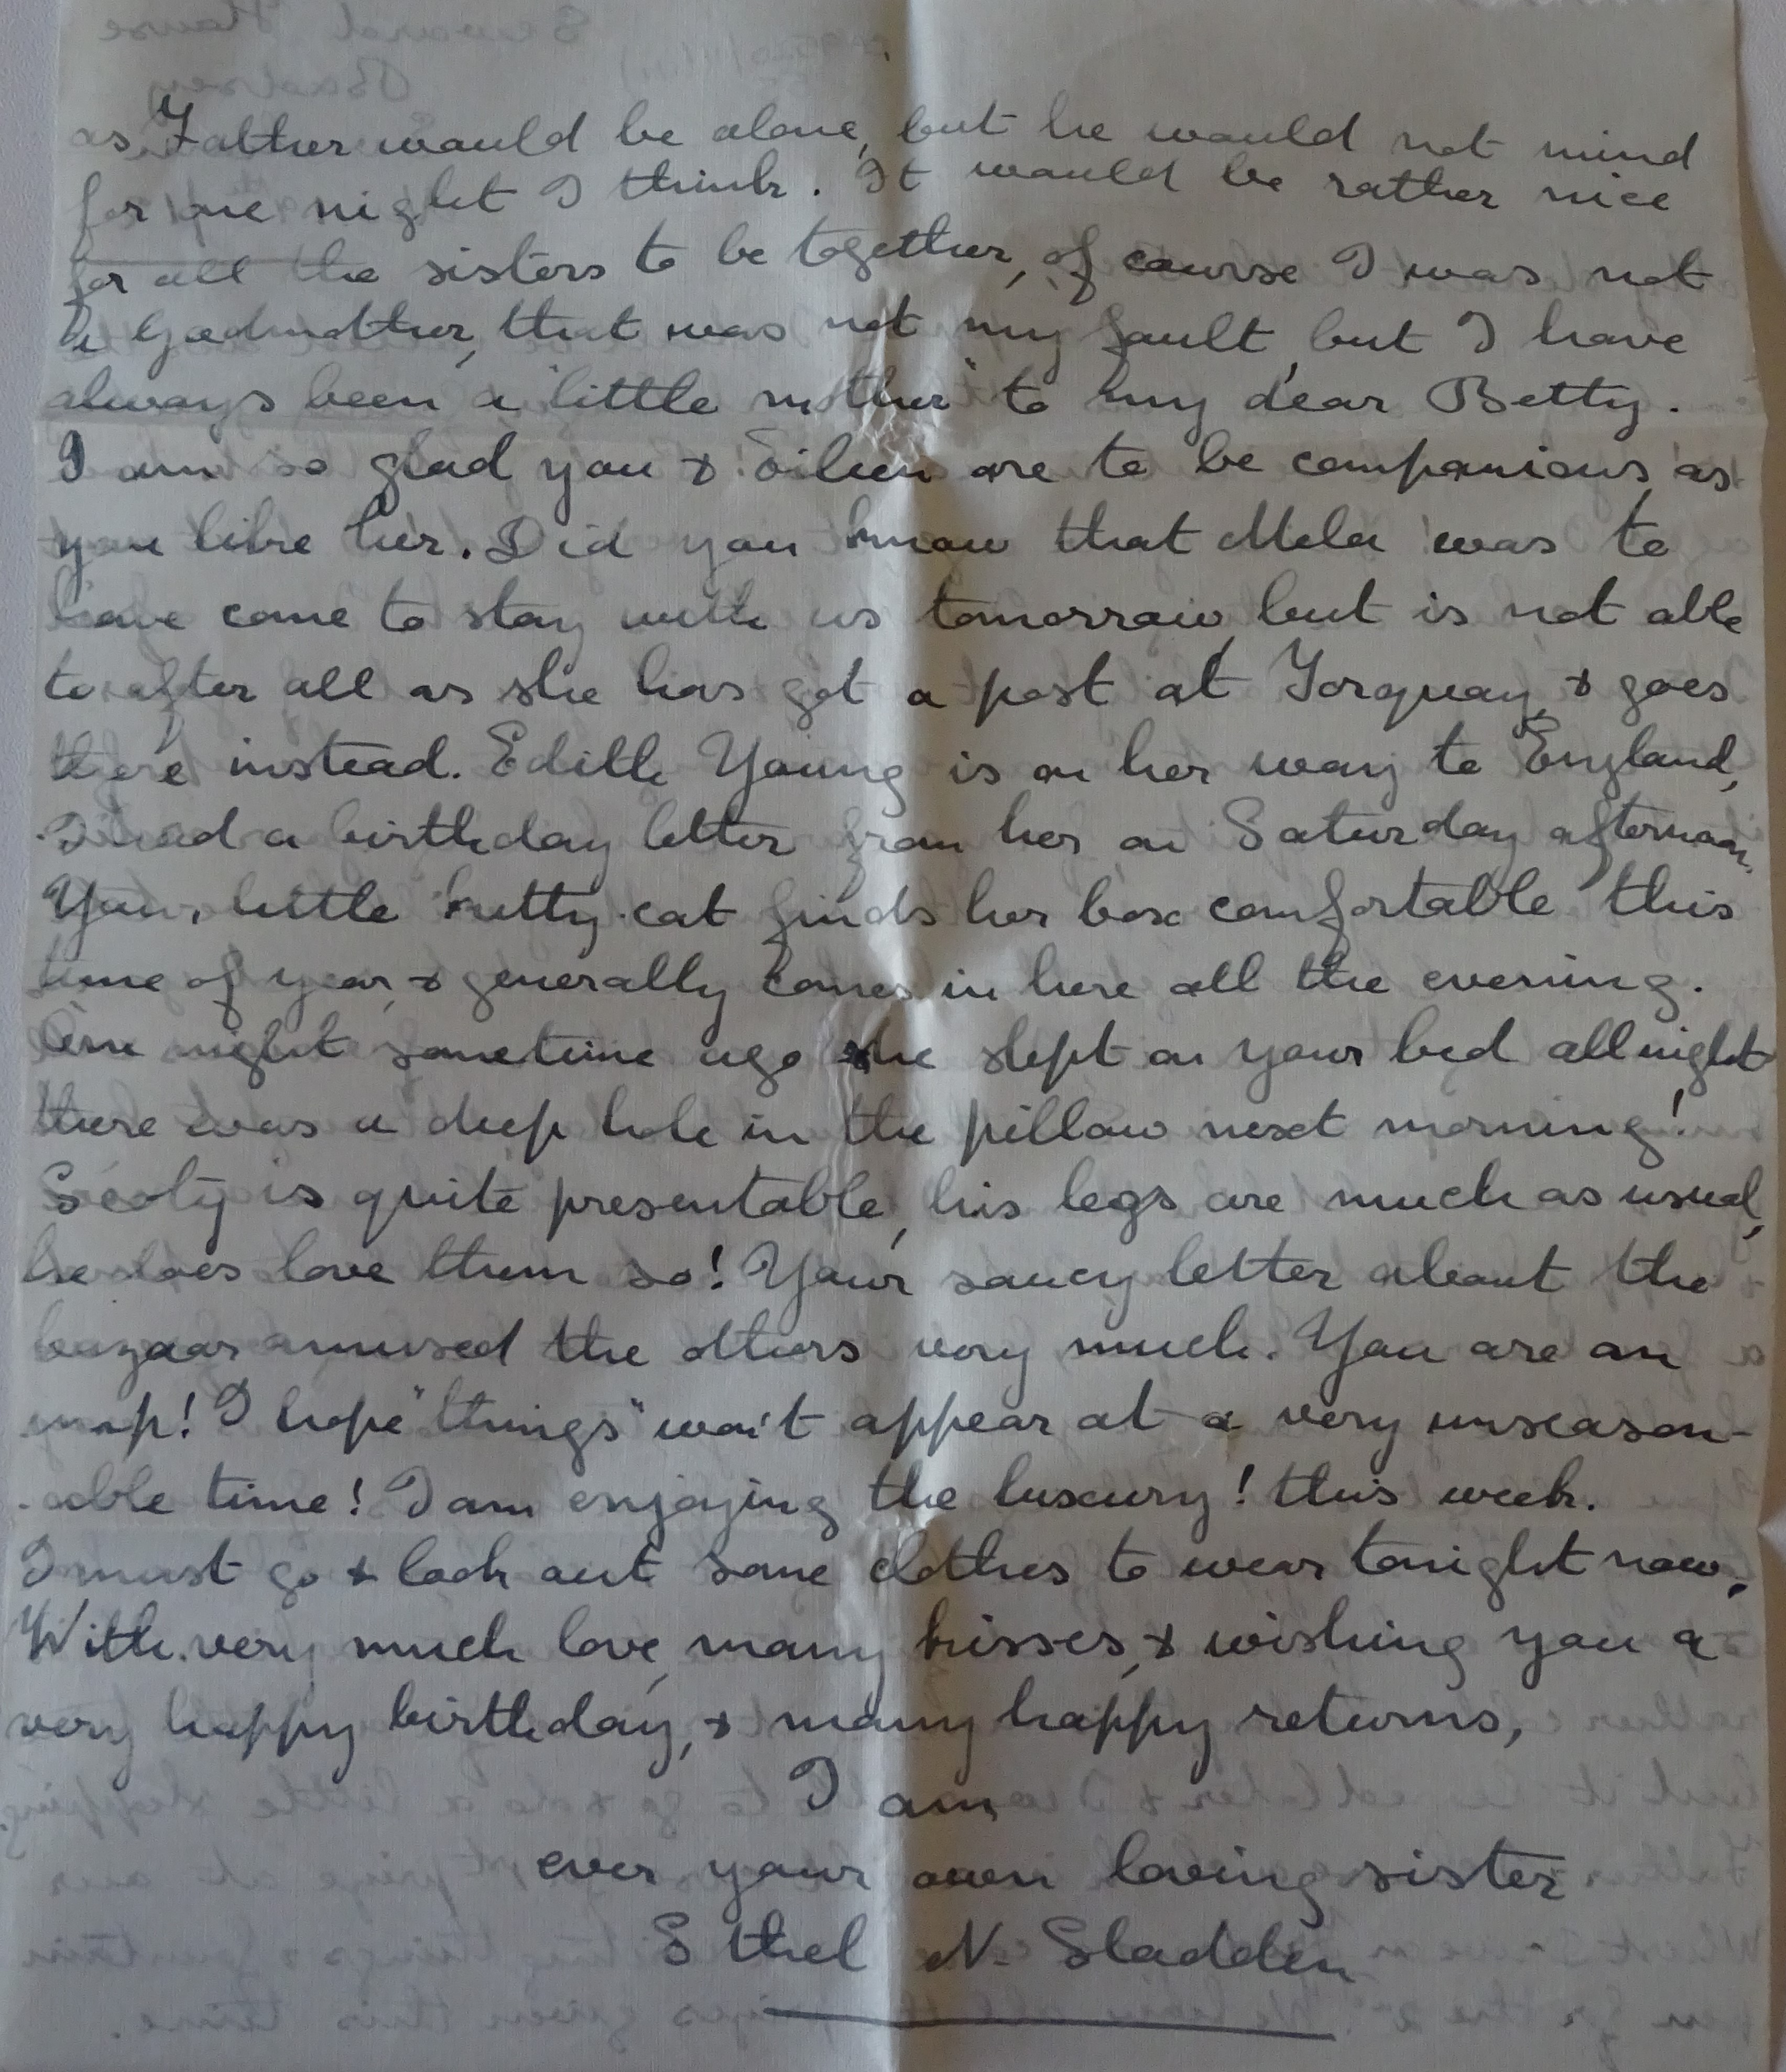 as Father would be alone, but he would not mind
for one night I think. It would be rather nice
for all the sisters to be together, of course I was not
a Godmother, that was not my fault, but I have
always been a "little mother" to my dear Betty.
I am so glad you & Eileen are to be companions, as
you like her. Did you know that Mela was to
have come to stay with us tomorrow, but is not able
to after all as she has got a post at Torquay, & goes
there instead. Edith Young is on her way to England,
I had a birthday letter from her on Saturday afternoon.
Your little kutty-cat finds her box comfortable this
time of year, & generally comes in here all the evening.
One night sometime ago she slept on your bed all night
there was a deep hole in the pillow next morning!
Scoty is quite presentable, his legs are much as usual,
he does love them so! Your saucy letter about the
bazaar amused the others very much. You are an
imp! I hope "things" won't appear at a very unseason-
-able time! I am enjoying the luxury! this week.
I must go & look out some clothes to wear tonight now,
With very much love, many kisses, & wishing you a
very happy birthday, & many happy returns,
I am
ever your own loving sister
Ethel N. Sladden